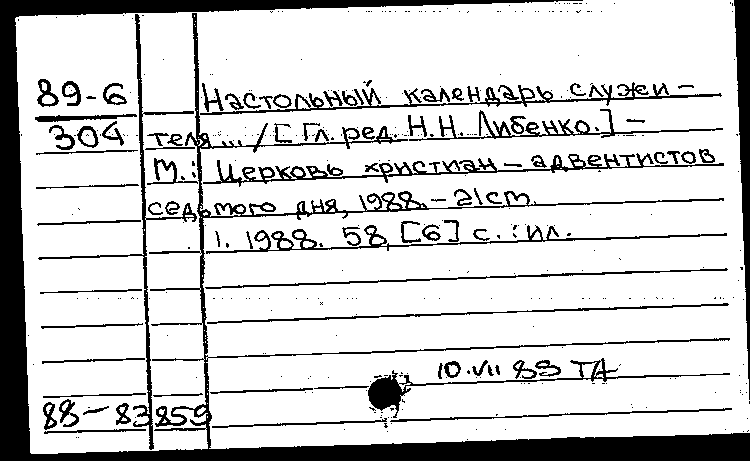 89-6
304
Настольный календарь служи-
теля... /[Гл. ред. Н.Н. Либенко.] -
М.: Церковь христиан-адвентистов
седьмого дня, 1988. - 21 см.
1. 1988. 58, [6] с.: ил.
10.VII 89 ТА
88-83859